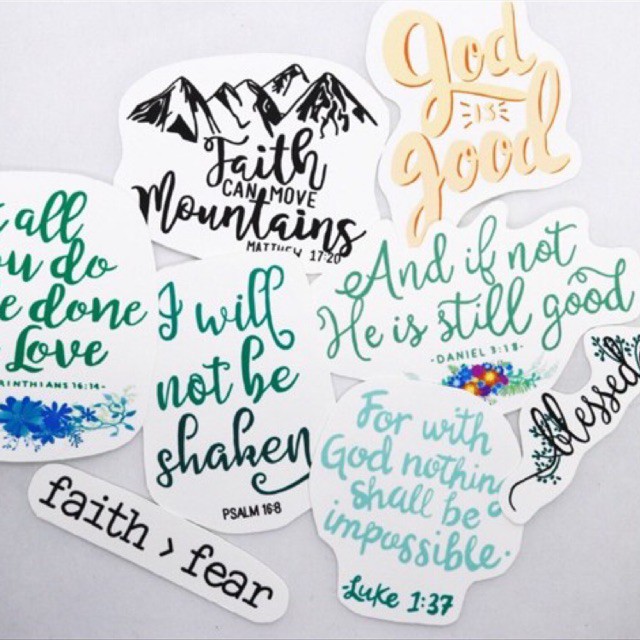 Faith
CAN MOVE
Mountains
MATTHEW 17:20
God
IS
good
all
do
done
Love
16:14-
I will
not be
shaken
PSALM 16:8
And if not
He is still good
-DANIEL 3:18-
blessed
For with
God nothin
shall be
impossible.
Luke 1:37
faith > fear